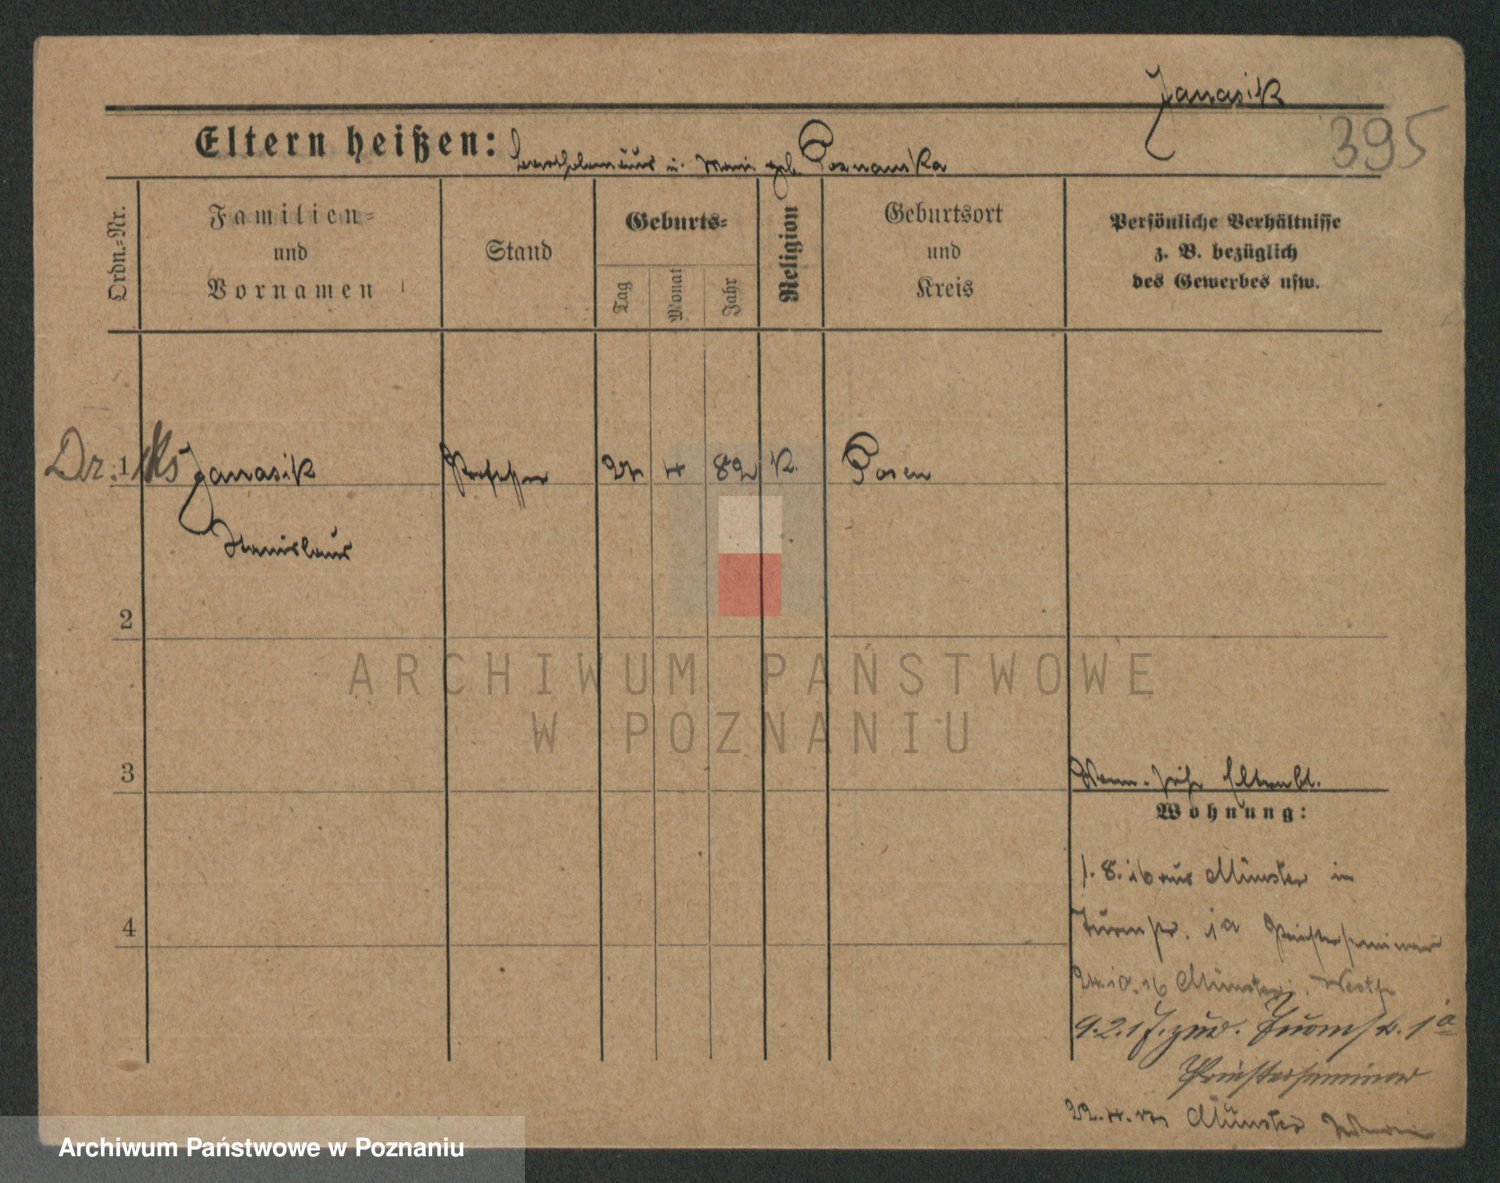 Janasik
395
Eltern heißen: Bartholomäus u. Marie geb. Poznanska
Ordn.=Nr.
Familien=
und
Vornamen
Stand
Geburts=
Tag
Monat
Jahr
Religion
Geburtsort
und
Kreis
Persönliche Verhältnisse
z. B. bezüglich
des Gewerbes usw.
Dr. 1 Janasik 4 82 K. Posen
Stanislaus
2
ARCHIWUM PAŃSTWOWE
W POZNANIU
3
Wohnung:
1.8.16 aus Münster in
4
Turmstr. 1a Priesterseminar
24.10.16 Münster i. Westf
9.2.17 zur. Turmstr. 1a
Priesterseminar
22.4. Münster
Archiwum Państwowe w Poznaniu